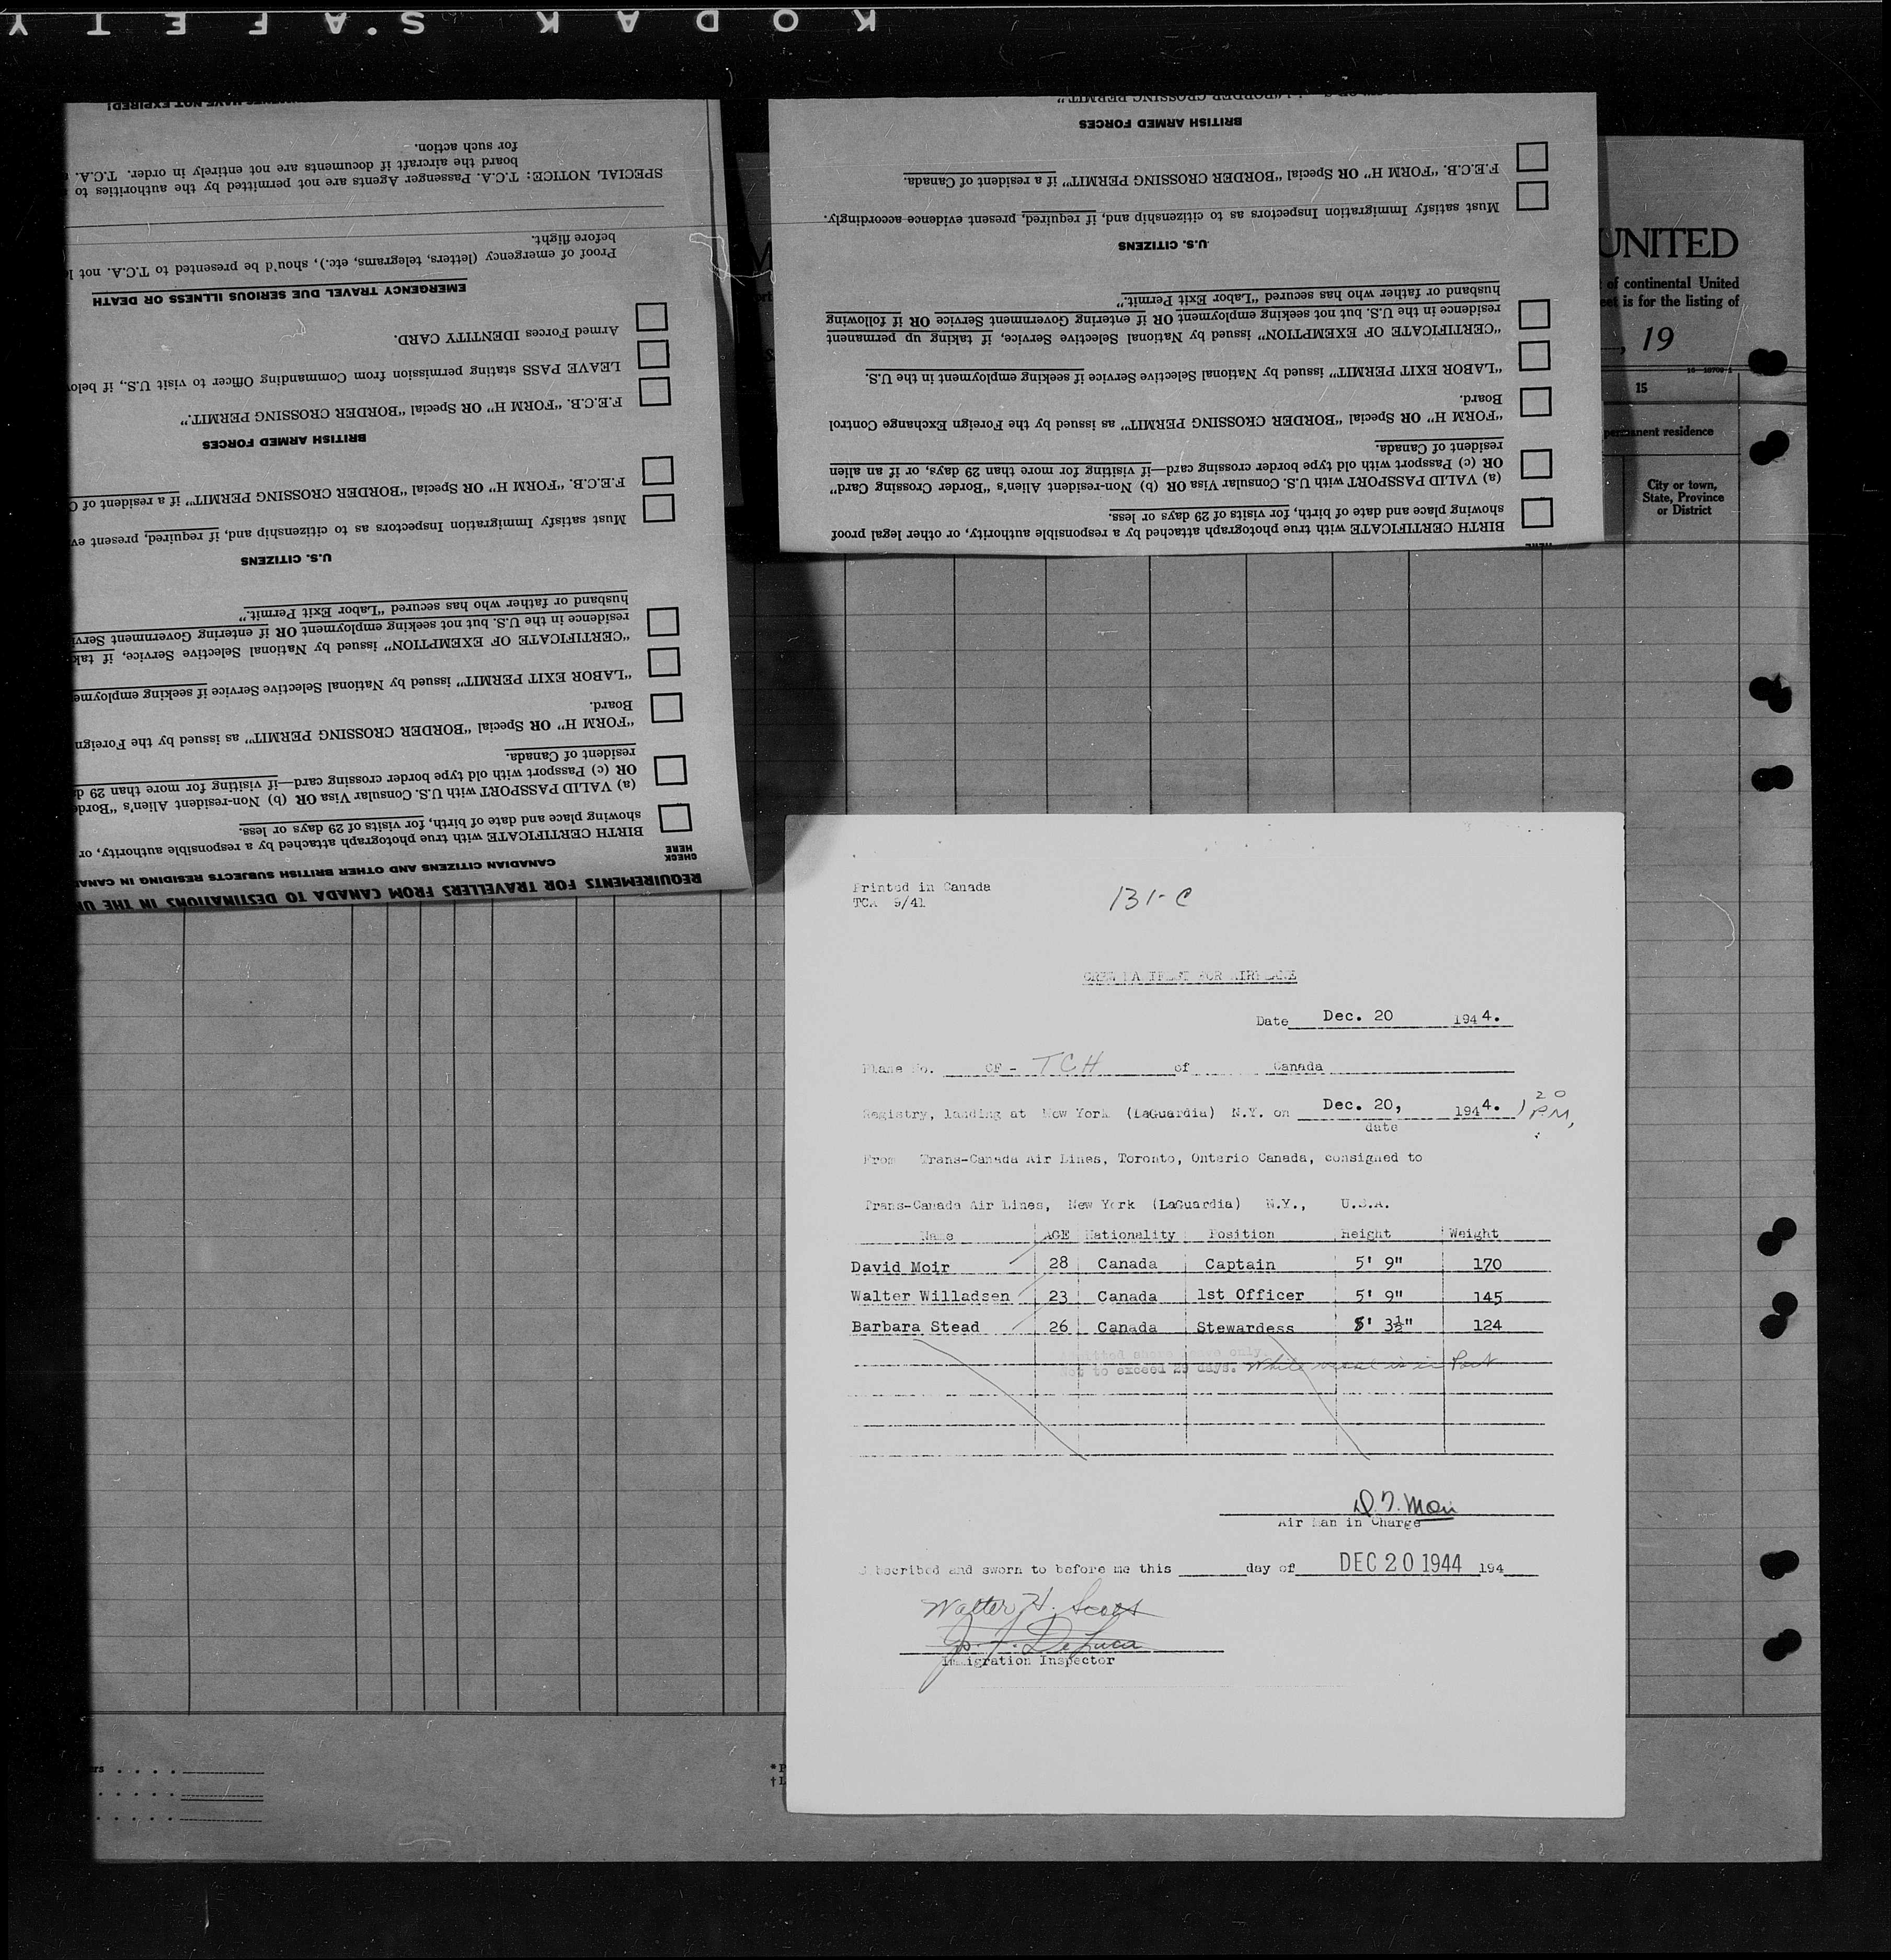 KODAK SAFETY
REQUIREMENTS FOR TRAVELLERS FROM CANADA TO DESTINATIONS IN THE
CANADIAN CITIZENS AND OTHER BRITISH SUBJECTS RESIDING IN
CHECK
HERE
BIRTH CERTIFICATE with true photograph attached by a responsible authority, or
showing place and date of birth, for visits of 29 days or less.
(a) VALID PASSPORT with U.S. Consular Visa OR (b) Non-resident Alien's
OR (c) Passport with old type border crossing card—if visiting for more than 29
resident of Canada.
"FORM H" OR Special "BORDER CROSSING PERMIT" as issued by the Foreign
Board.
"LABOR EXIT PERMIT" issued by National Selective Service if seeking
"CERTIFICATE OF EXEMPTION" issued by National Selective Service, if
residence in the U.S. but not seeking employment OR if entering Government
husband or father who has secured "Labor Exit Permit."
U.S. CITIZENS
Must satisfy Immigration Inspectors as to citizenship and, if required, present
F.E.C.B. "FORM H" OR Special "BORDER CROSSING PERMIT" if a resident of
BRITISH ARMED FORCES
F.E.C.B. "FORM H" OR Special "BORDER CROSSING PERMIT."
LEAVE PASS stating permission from Commanding Officer to visit U.S., if
Armed Forces IDENTITY CARD.
EMERGENCY TRAVEL DUE SERIOUS ILLNESS OR DEATH
Proof of emergency (letters, telegrams, etc.), shou'd be presented to T.C.A. not
before flight.
SPECIAL NOTICE: T.C.A. Passenger Agents are not permitted by the authorities to
board the aircraft if documents are not entirely in order. T.C.A.
for such action.
HAVE NOT EXPIRED!
HERE
BIRTH CERTIFICATE with true photograph attached by a responsible authority, or other legal proof
showing place and date of birth, for visits of 29 days or less.
(a) VALID PASSPORT with U.S. Consular Visa OR (b) Non-resident Alien's "Border Crossing Card"
OR (c) Passport with old type border crossing card—if visiting for more than 29 days, or if an alien
resident of Canada.
"FORM H" OR Special "BORDER CROSSING PERMIT" as issued by the Foreign Exchange Control
Board.
"LABOR EXIT PERMIT" issued by National Selective Service if seeking employment in the U.S.
"CERTIFICATE OF EXEMPTION" issued by National Selective Service, if taking up permanent
residence in the U.S. but not seeking employment OR if entering Government Service OR if following
husband or father who has secured "Labor Exit Permit."
U.S. CITIZENS
Must satisfy Immigration Inspectors as to citizenship and, if required, present evidence accordingly.
F.E.C.B. "FORM H" OR Special "BORDER CROSSING PERMIT" if a resident of Canada.
BRITISH ARMED FORCES
"BORDER CROSSING PERMIT."
UNITED
of continental United
is for the listing of
, 19
15
permanent residence
City or town,
State, Province
or District
Printed in Canada
TCA 9/41
131-C
CREW MANIFEST FOR AIRPLANE
Date Dec. 20 1944.
Plane No. CF - TCH of Canada
Registry, landing at New York (LaGuardia) N.Y. on Dec. 20, 1944. 1 20 P.M,
date
From Trans-Canada Air Lines, Toronto, Ontario Canada, consigned to
Trans-Canada Air Lines, New York (LaGuardia) N.Y., U.S.A.
Name AGE Nationality Position Height Weight
David Moir 28 Canada Captain 5' 9" 170
Walter Willadsen 23 Canada 1st Officer 5' 9" 145
Barbara Stead 26 Canada Stewardess 5' 3½" 124
Admitted shore leave only.
Not to exceed 29 days. While vessel is in Port
D. T. Moir
Air Man in Charge
Subscribed and sworn to before me this day of DEC 20 1944 194
Walter H. Scott
Jos. F. DeLuca
Immigration Inspector